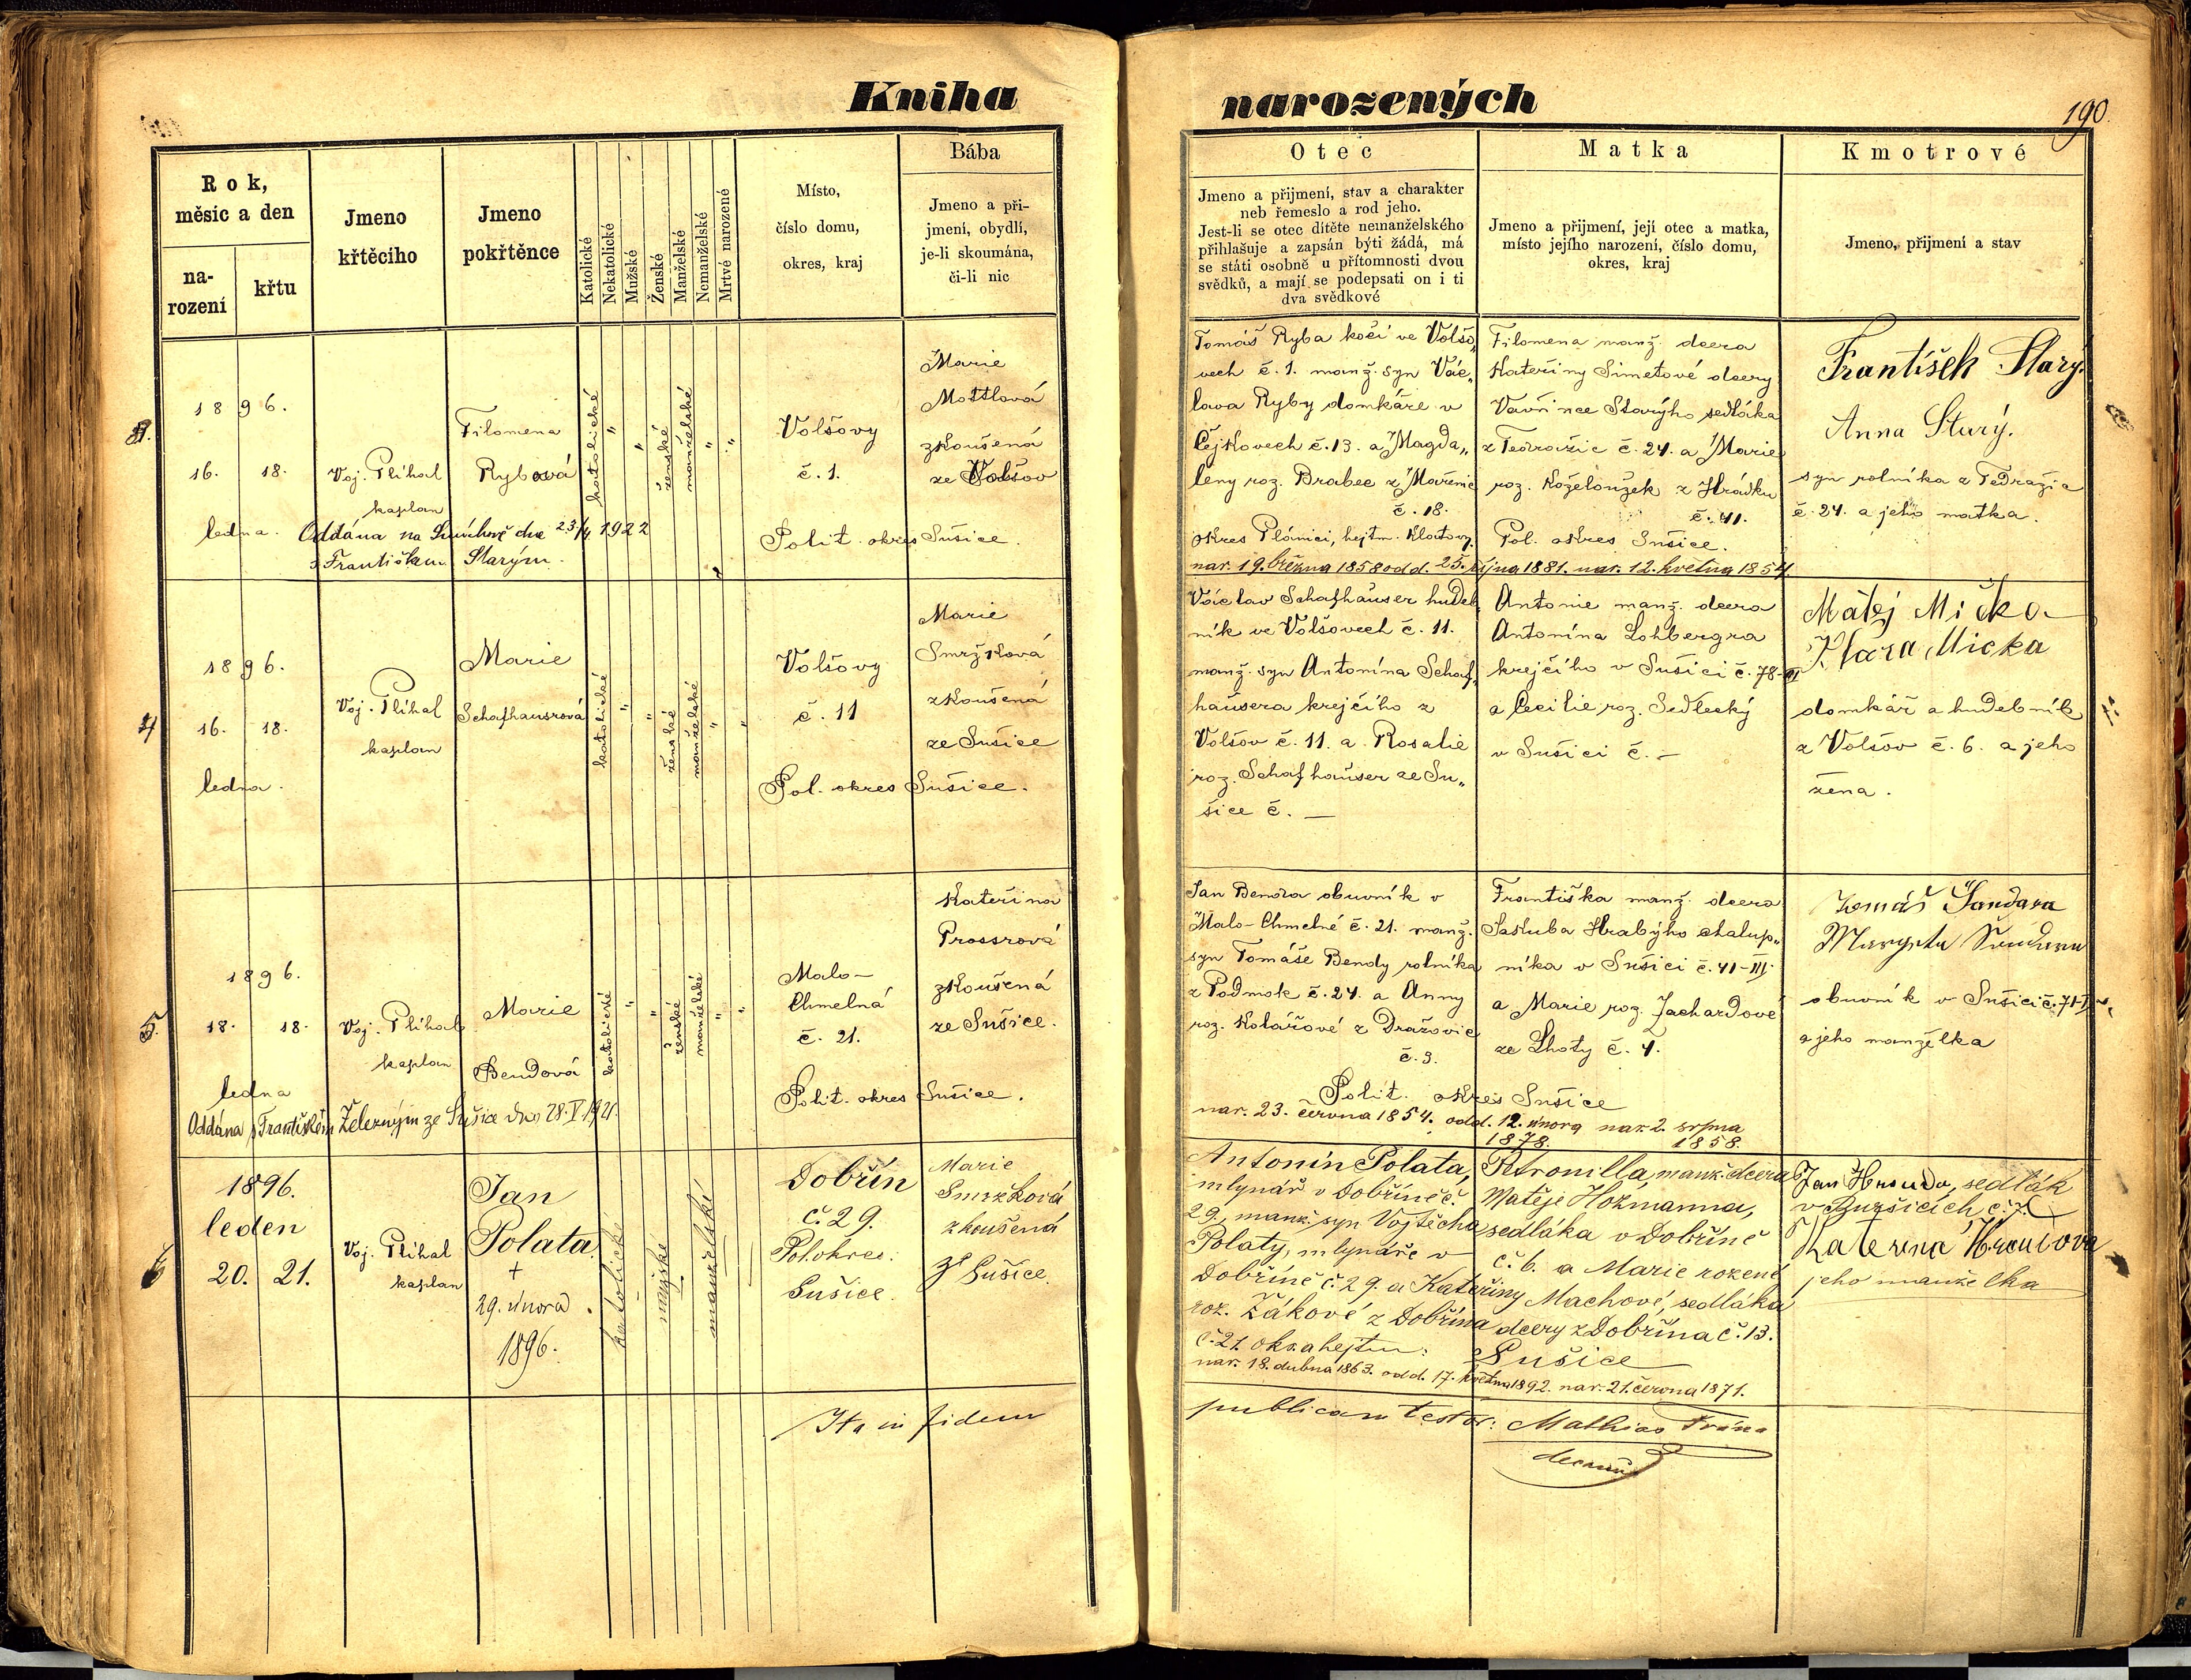 Kniha
narozených
190
Rok,
měsíc a den
na-
rození
křtu
Jmeno
křtěcího
Jmeno
pokřtěnce
Katolické
Nekatolické
Mužské
Ženské
Manželské
Nemanželské
Mrtvé narozené
Místo,
číslo domu,
okres, kraj
Bába
Jmeno a při-
jmení, obydlí,
je-li skoumána,
či-li nic
Otec
Jmeno a přijmení, stav a charakter
neb řemeslo a rod jeho.
Jest-li se otec dítěte nemanželského
přihlašuje a zapsán býti žádá, má
se státi osobně u přítomnosti dvou
svědků, a mají se podepsati on i ti
dva svědkové
Matka
Jmeno a přijmení, její otec a matka,
místo jejího narození, číslo domu,
okres, kraj
Kmotrové
Jmeno, přijmení a stav
3.
1896.
16. 18.
ledna.
Voj. Plihal
kaplan
Filomena
Rybová
katolické
"
"
ženské
manželské
"
"
Volšovy
č. 1.
Polit. okres Sušice.
Marie
Mottlová
zkoušená
ze Volšov
Oddána na Smíchově dne 23/4 1922
s Františkem Starým.
Tomáš Ryba kočí ve Volšo„
vech č. 1. manž. syn Vác„
lava Ryby domkáře v
Čejkovech č. 13. a Magda„
leny roz. Brabec z Mařenic
č. 18.
okres Plánici, hejtm. Klatovy.
Filomena manž. dcera
Kateřiny Simetové dcery
Vavřince Starýho sedláka
z Tedražic č. 24. a Marie
roz. Koželoužek z Hrádku
č. 41.
Pol. okres Sušice.
nar. 19. března 1858 odd. 25. října 1881. nar. 12. května 1854.
František Starý.
Anna Starý.
syn rolníka z Tedražic
č. 24. a jeho matka.
4
1896.
16. 18.
ledna.
Voj. Plihal
kaplan
Marie
Schafhausrová
katolické
"
"
ženské
manželské
"
"
Volšovy
č. 11
Pol. okres Sušice.
Marie
Smržková
zkoušená
ze Sušice
Václav Schafhäuser hudeb„
ník ve Volšovech č. 11.
manž. syn Antonína Schaf„
häusera krejčího z
Volšov č. 11. a Rosalie
roz. Schafhäuser ze Su„
šice č. —
Antonie manž. dcera
Antonína Lohbergra
krejčího v Sušici č. 78-III
a Cecilie roz. Sedlecký
v Sušici č. —
Matěj Mička
Klára Micka
domkář a hudebník
z Volšov č. 6. a jeho
žena.
5.
1896.
18. 18.
ledna
Voj. Plihal
kaplan
Marie
Bendová
katolické
"
"
ženské
manželské
"
"
Malo-
Chmelná
č. 21.
Polit. okres Sušice.
Kateřina
Prossrová
zkoušená
ze Sušice.
Oddána s Františkem Železným ze Sušice dne 28. V. 1921.
Jan Benda obuvník v
Malo-Chmelné č. 21. manž.
syn Tomáše Bendy rolníka
z Podmok č. 24. a Anny
roz. Kolářové z Dražovic
č. 3.
Františka manž. dcera
Jakuba Hrabýho chalup„
níka v Sušici č. 41-III.
a Marie roz. Jachardové
ze Lhoty č. 4.
Polit. okres Sušice
nar. 23. června 1854. odd. 12. února nar. 2. srpna
1878. 1858.
Tomáš Šandara
obuvník v Sušici č. 71-II
a jeho manželka
6
1896.
leden
20. 21.
Voj. Plihal
kaplan
Jan
Polata
+
29. února
1896.
katolické
mužské
manželské
Dobřín
č. 29.
Pol. okres:
Sušice.
Marie
Smržková
zkoušená
ze Sušice.
Antonín Polata,
mlynář v Dobříně č.
29., manž. syn Vojtěcha
Polaty, mlynáře v
Dobříně č. 29. a Kateřiny
roz. Žákové z Dobřína
č. 21. okr. a hejtm:
Petronilla, manž. dcera
Matěje Hozmanna,
sedláka v Dobříně
č. 6. a Marie rozené
Machové, sedláka
dcery z Dobřína č. 13.
Sušice
nar. 18. dubna 1863. odd. 17. května 1892. nar. 21. června 1871.
Jan Hrouda, sedlák
v Buršicích č. 7.
Kateřina Hroudova
jeho manželka
Ita in fidem
publicam testor: Mathias Frána
decanus